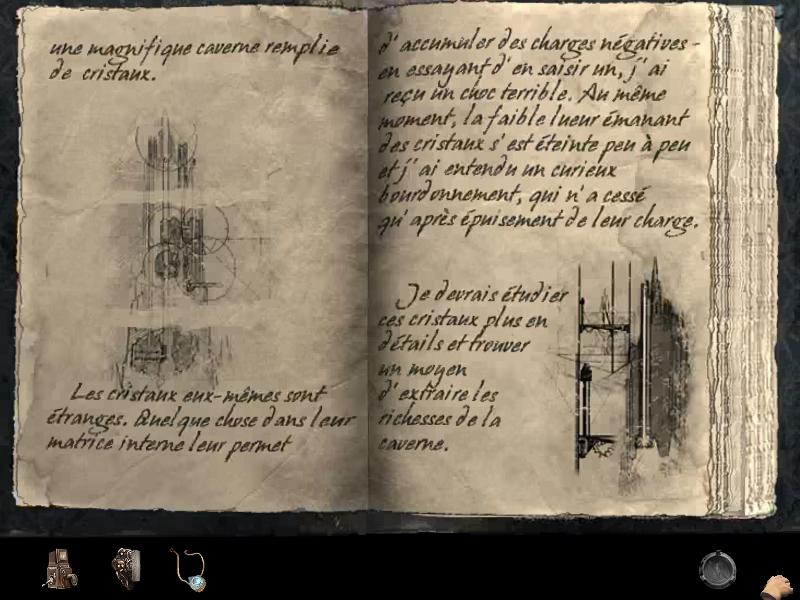 une magnifique caverne remplie
de cristaux.
Les cristaux eux-mêmes sont
étranges. Quelque chose dans leur
matrice interne leur permet
d'accumuler des charges négatives -
en essayant d'en saisir un, j'ai
reçu un choc terrible. Au même
moment, la faible lueur émanant
des cristaux s'est éteinte peu à peu
et j'ai entendu un curieux
bourdonnement, qui n'a cessé
qu'après épuisement de leur charge.
Je devrais étudier
ces cristaux plus en
détails et trouver
un moyen
d'extraire les
richesses de la
caverne.